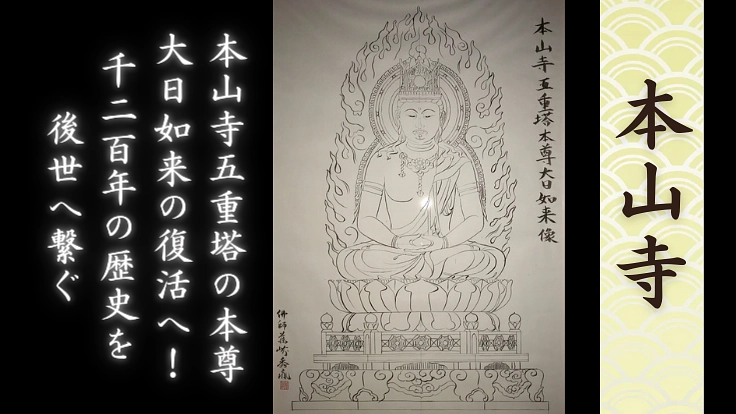 本山寺
本山寺五重塔本尊大日如来像
本山寺五重塔の本尊
大日如来の復活へ！
千二百年の歴史を
後世へ繋ぐ